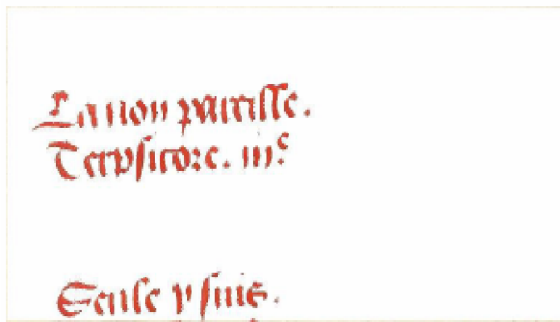 La non pareille.
Terpsicore. iiiᵉ
Seule y suis.